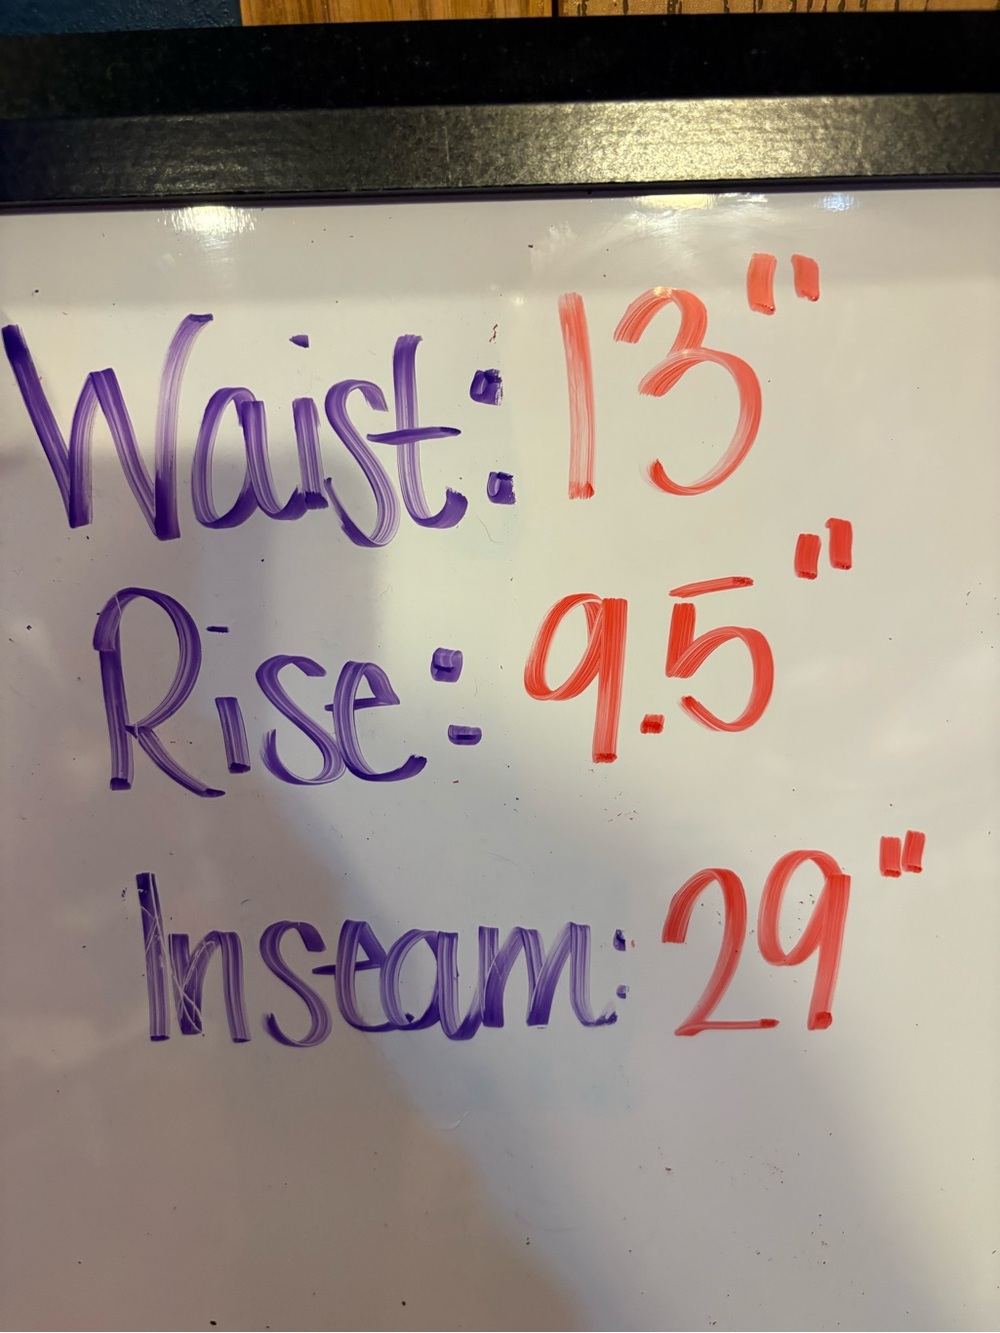 Waist: 13"
Rise: 9.5"
Inseam: 29"